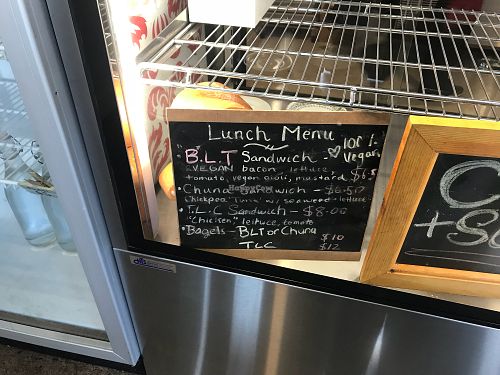 Lunch Menu
100% Vegan
B.L.T Sandwich -
VEGAN bacon, lettuce, $6.5
tomato, vegan aioli, mustard
Chuna Sandwich - $6.50
Chickpea "Tuna" w/ seaweed lettuce
T.L.C Sandwich - $8.00
"Chicken" lettuce, tomato
Bagels - BLT or Chuna $10
TLC $12
HappyCow